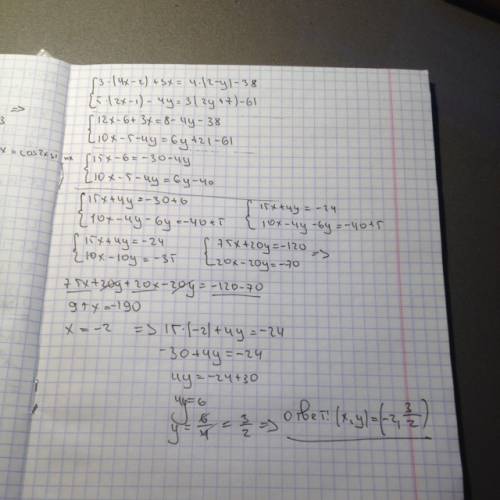 {3·(4x-2)+3x=4·(2-y)-38
{5·(2x-1)-4y=3(2y+7)-61
{12x-6+3x=8-4y-38
=>
3
{10x-5-4y=6y+21-61
x=cos2x
{15x-6=-30-4y
{10x-5-4y=6y-40
{15x+4y=-30+6 {15x+4y=-24
{10x-4y-6y=-40+5 {10x-4y-6y=-40+5
{15x+4y=-24 {75x+20y=-120
{10x-10y=-35 {20x-20y=-70 =>
75x+20y+20x-20y=-120-70
95x=-190
x=-2 => 15·(-2)+4y=-24
-30+4y=-24
4y=-24+30
4y=6
y=6/4=3/2 => Ответ: (x,y)=(-2,3/2)